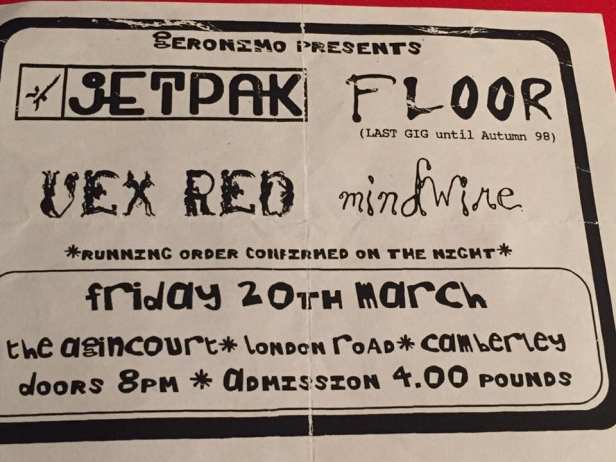 GERONIMO PRESENTS
JETPAK FLOOR
(LAST GIG until Autumn 98)
VEX RED mindwire
*RUNNING ORDER CONFIRMED ON THE NIGHT*
friday 20TH march
the agincourt* LONDON ROAD* camberley
doors 8PM * ADMISSION 4.00 POUNDS